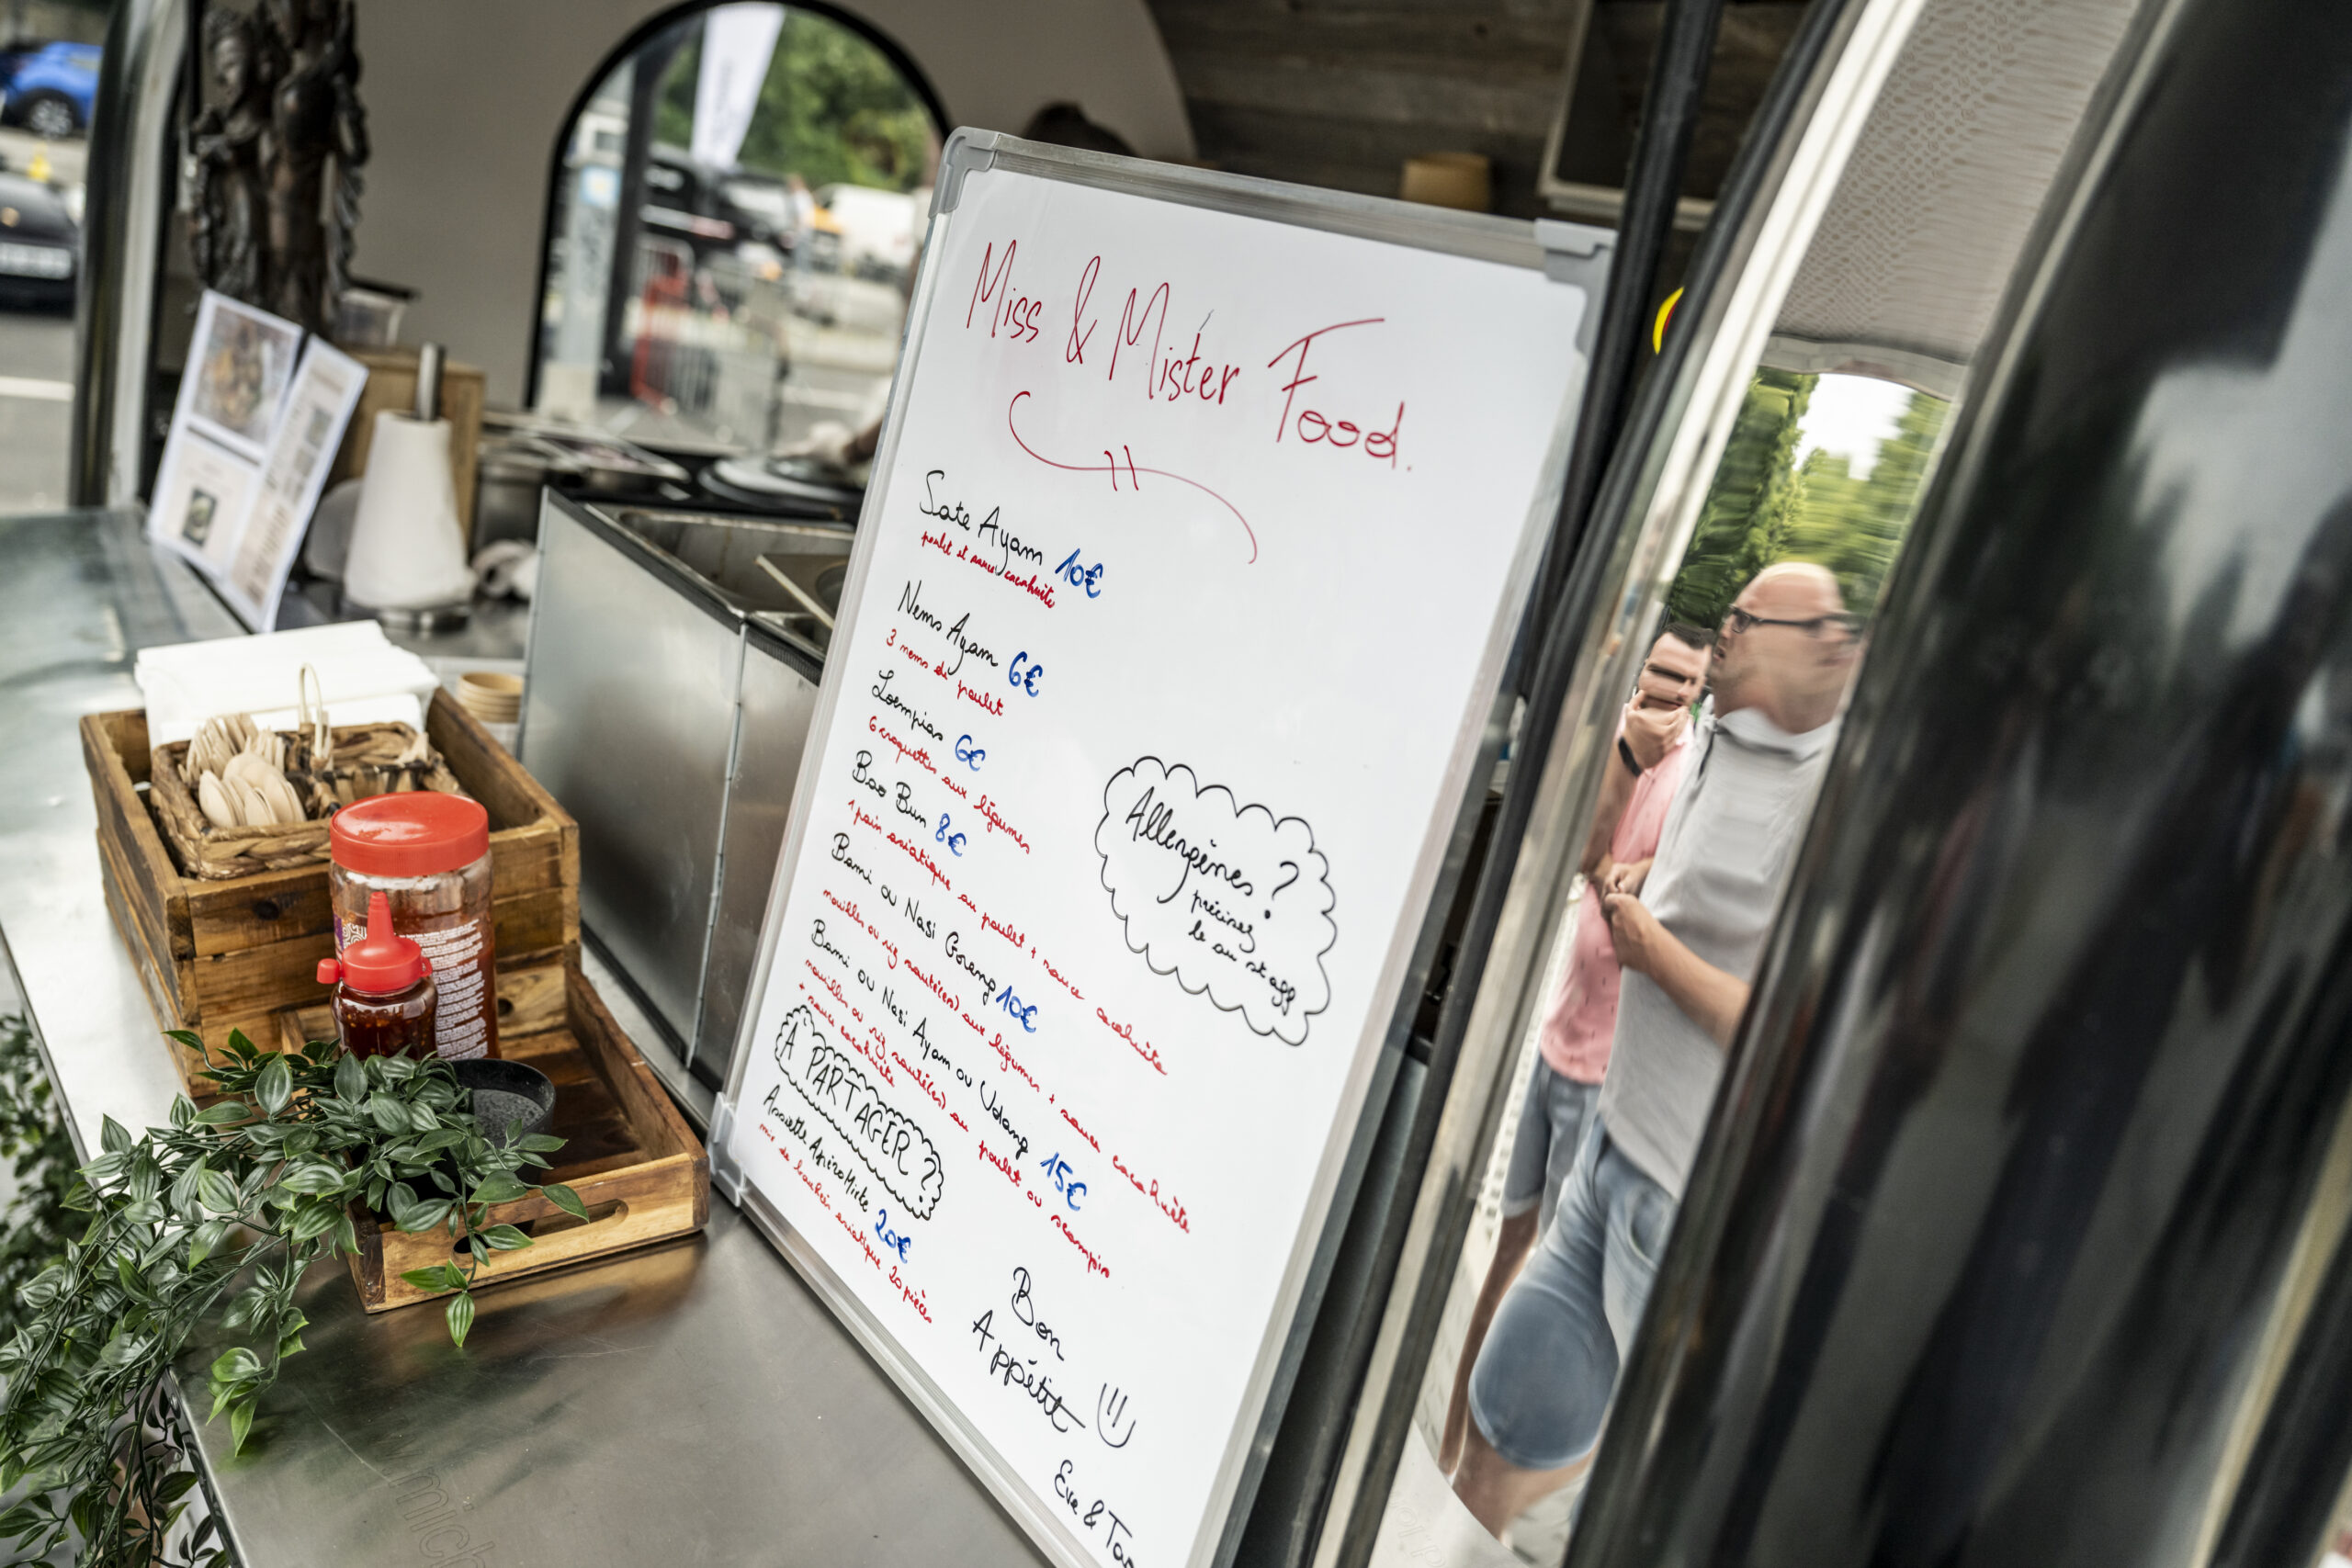 Miss & Mister Food.
Sate Ayam 10€
poulet et sauce cacahuète
Nems Ayam 6€
3 nems de poulet
Loempias 6€
6 croquettes aux légumes
Bao Bun 8€
1 pain asiatique au poulet + sauce cacahuète
Bami ou Nasi Goreng 10€
nouilles ou riz sauté(es) aux légumes + sauce cacahuète
Bami ou Nasi Ayam ou Udang 15€
nouilles ou riz sauté(es) au poulet ou scampis
+ sauce cacahuète
A PARTAGER ?
Assiette Apéro Mixte 20€
mix de bouchées asiatique 20 pièces
Allergènes ?
précisez
le au staff
Bon
Appétit
Eve &